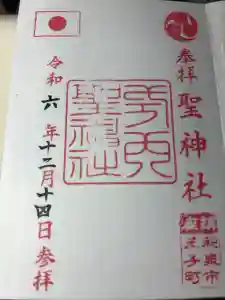 奉拝
聖神社
和泉市
王子町
令和六年十二月十四日参拝